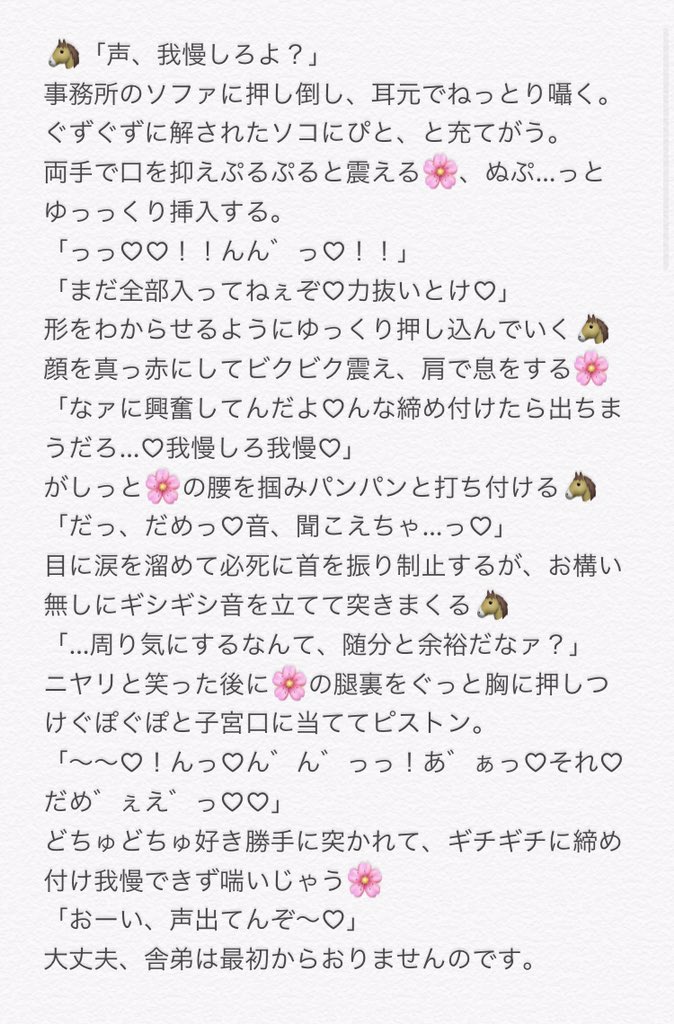 🐴「声、我慢しろよ？」
事務所のソファに押し倒し、耳元でねっとり囁く。
ぐずぐずに解されたソコにぴと、と充てがう。
両手で口を抑えぷるぷると震える🌸、ぬぷ…っと
ゆっっくり挿入する。
「っっ♡♡！！んん゛っ♡！！」
「まだ全部入ってねぇぞ♡力抜いとけ♡」
形をわからせるようにゆっくり押し込んでいく🐴
顔を真っ赤にしてビクビク震え、肩で息をする🌸
「なァに興奮してんだよ♡んな締め付けたら出ちま
うだろ…♡我慢しろ我慢♡」
がしっと🌸の腰を掴みパンパンと打ち付ける🐴
「だっ、だめっ♡音、聞こえちゃ…っ♡」
目に涙を溜めて必死に首を振り制止するが、お構い
無しにギシギシ音を立てて突きまくる🐴
「…周り気にするなんて、随分と余裕だなァ？」
ニヤリと笑った後に🌸の腿裏をぐっと胸に押しつ
けぐぽぐぽと子宮口に当ててピストン。
「〜〜♡！んっ♡ん゛ん゛っっ！あ゛ぁっ♡それ♡
だめ゛ぇえ゛っ♡♡」
どちゅどちゅ好き勝手に突かれて、ギチギチに締め
付け我慢できず喘いじゃう🌸
「おーい、声出てんぞ〜♡」
大丈夫、舎弟は最初からおりませんのです。